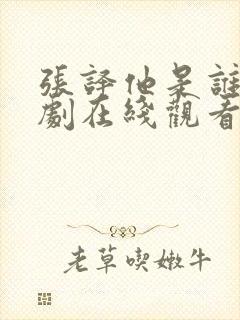 張譯他是誰
劇在綫觀看
老草喫嫩牛